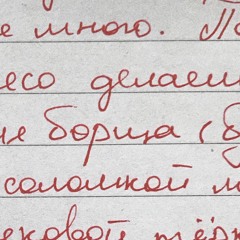 е много. По
есо делаем
не борща (б
соломкой м
ековой тёрк